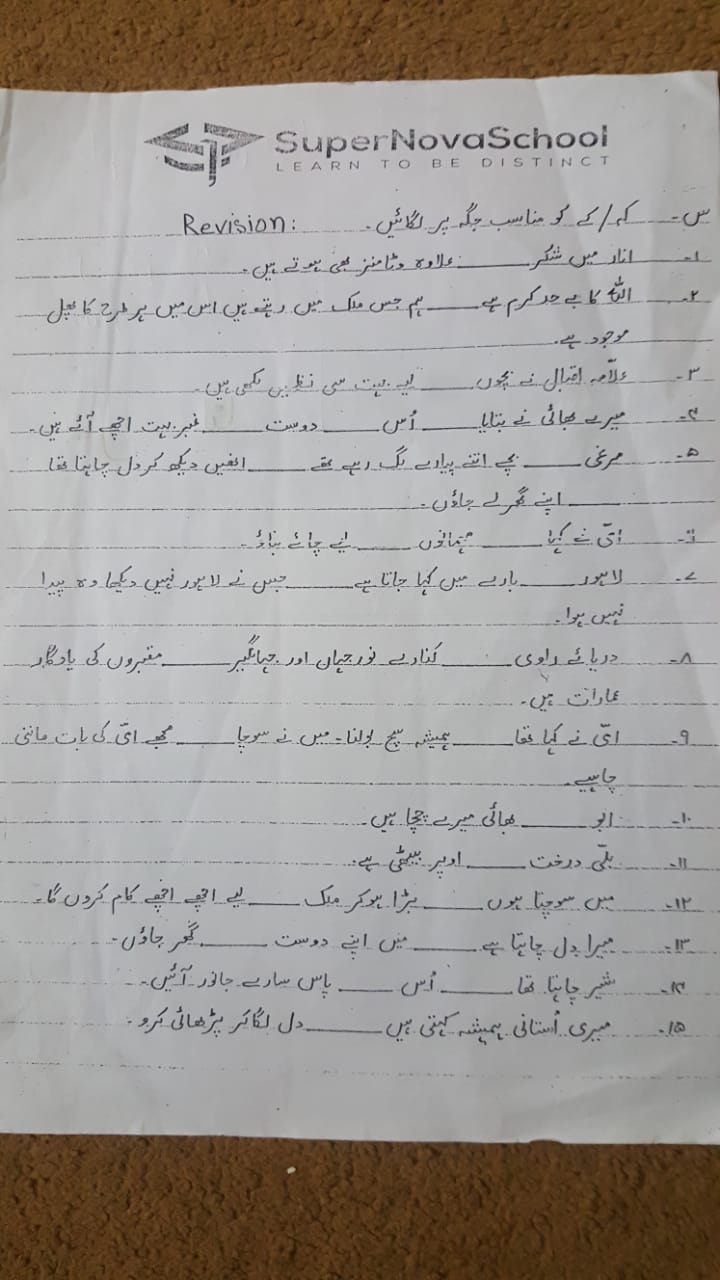 SuperNovaSchool
LEARN TO BE DISTINCT
س۔ کہ/کے کو مناسب جگہ پر لگائیں۔ Revision:
۱۔ انار میں شکر ______ علاوہ وٹامنز بھی ہوتے ہیں۔
۲۔ اللہ کا بے حد کرم ہے ______ ہم جس ملک میں رہتے ہیں اس میں ہر طرح کا پھل
موجود ہے۔
۳۔ علاّمہ اقبال نے بچوں ______ لیے بہت سی نظمیں لکھی ہیں۔
۴۔ میرے بھائی نے بتایا ______ اُس ______ دوست ______ نمبر بہت اچھے آئے ہیں۔
۵۔ مرغی ______ بچے اتنے پیارے لگ رہے تھے ______ انھیں دیکھ کر دل چاہتا تھا
______ اپنے گھر لے جاؤں۔
۶۔ امّی نے کہا ______ مہمانوں ______ لیے چائے بناؤ۔
۷۔ لاہور ______ بارے میں کہا جاتا ہے ______ جس نے لاہور نہیں دیکھا وہ پیدا
نہیں ہوا۔
۸۔ دریائے راوی ______ کنارے نور جہاں اور جہانگیر ______ مقبروں کی یادگار
عمارات ہیں۔
۹۔ امّی نے کہا تھا ______ ہمیشہ سچ بولنا۔ میں نے سوچا ______ مجھے امّی کی بات ماننی
چاہیے۔
۱۰۔ ابو ______ بھائی میرے چچا ہیں۔
۱۱۔ بلّی درخت ______ اوپر بیٹھی ہے۔
۱۲۔ میں سوچتا ہوں ______ بڑا ہوکر ملک ______ لیے اچھے اچھے کام کروں گا۔
۱۳۔ میرا دل چاہتا ہے ______ میں اپنے دوست ______ گھر جاؤں۔
۱۴۔ شیر چاہتا تھا ______ اُس ______ پاس سارے جانور آئیں۔
۱۵۔ میری اُستانی ہمیشہ کہتی ہیں ______ دل لگا کر پڑھائی کرو۔